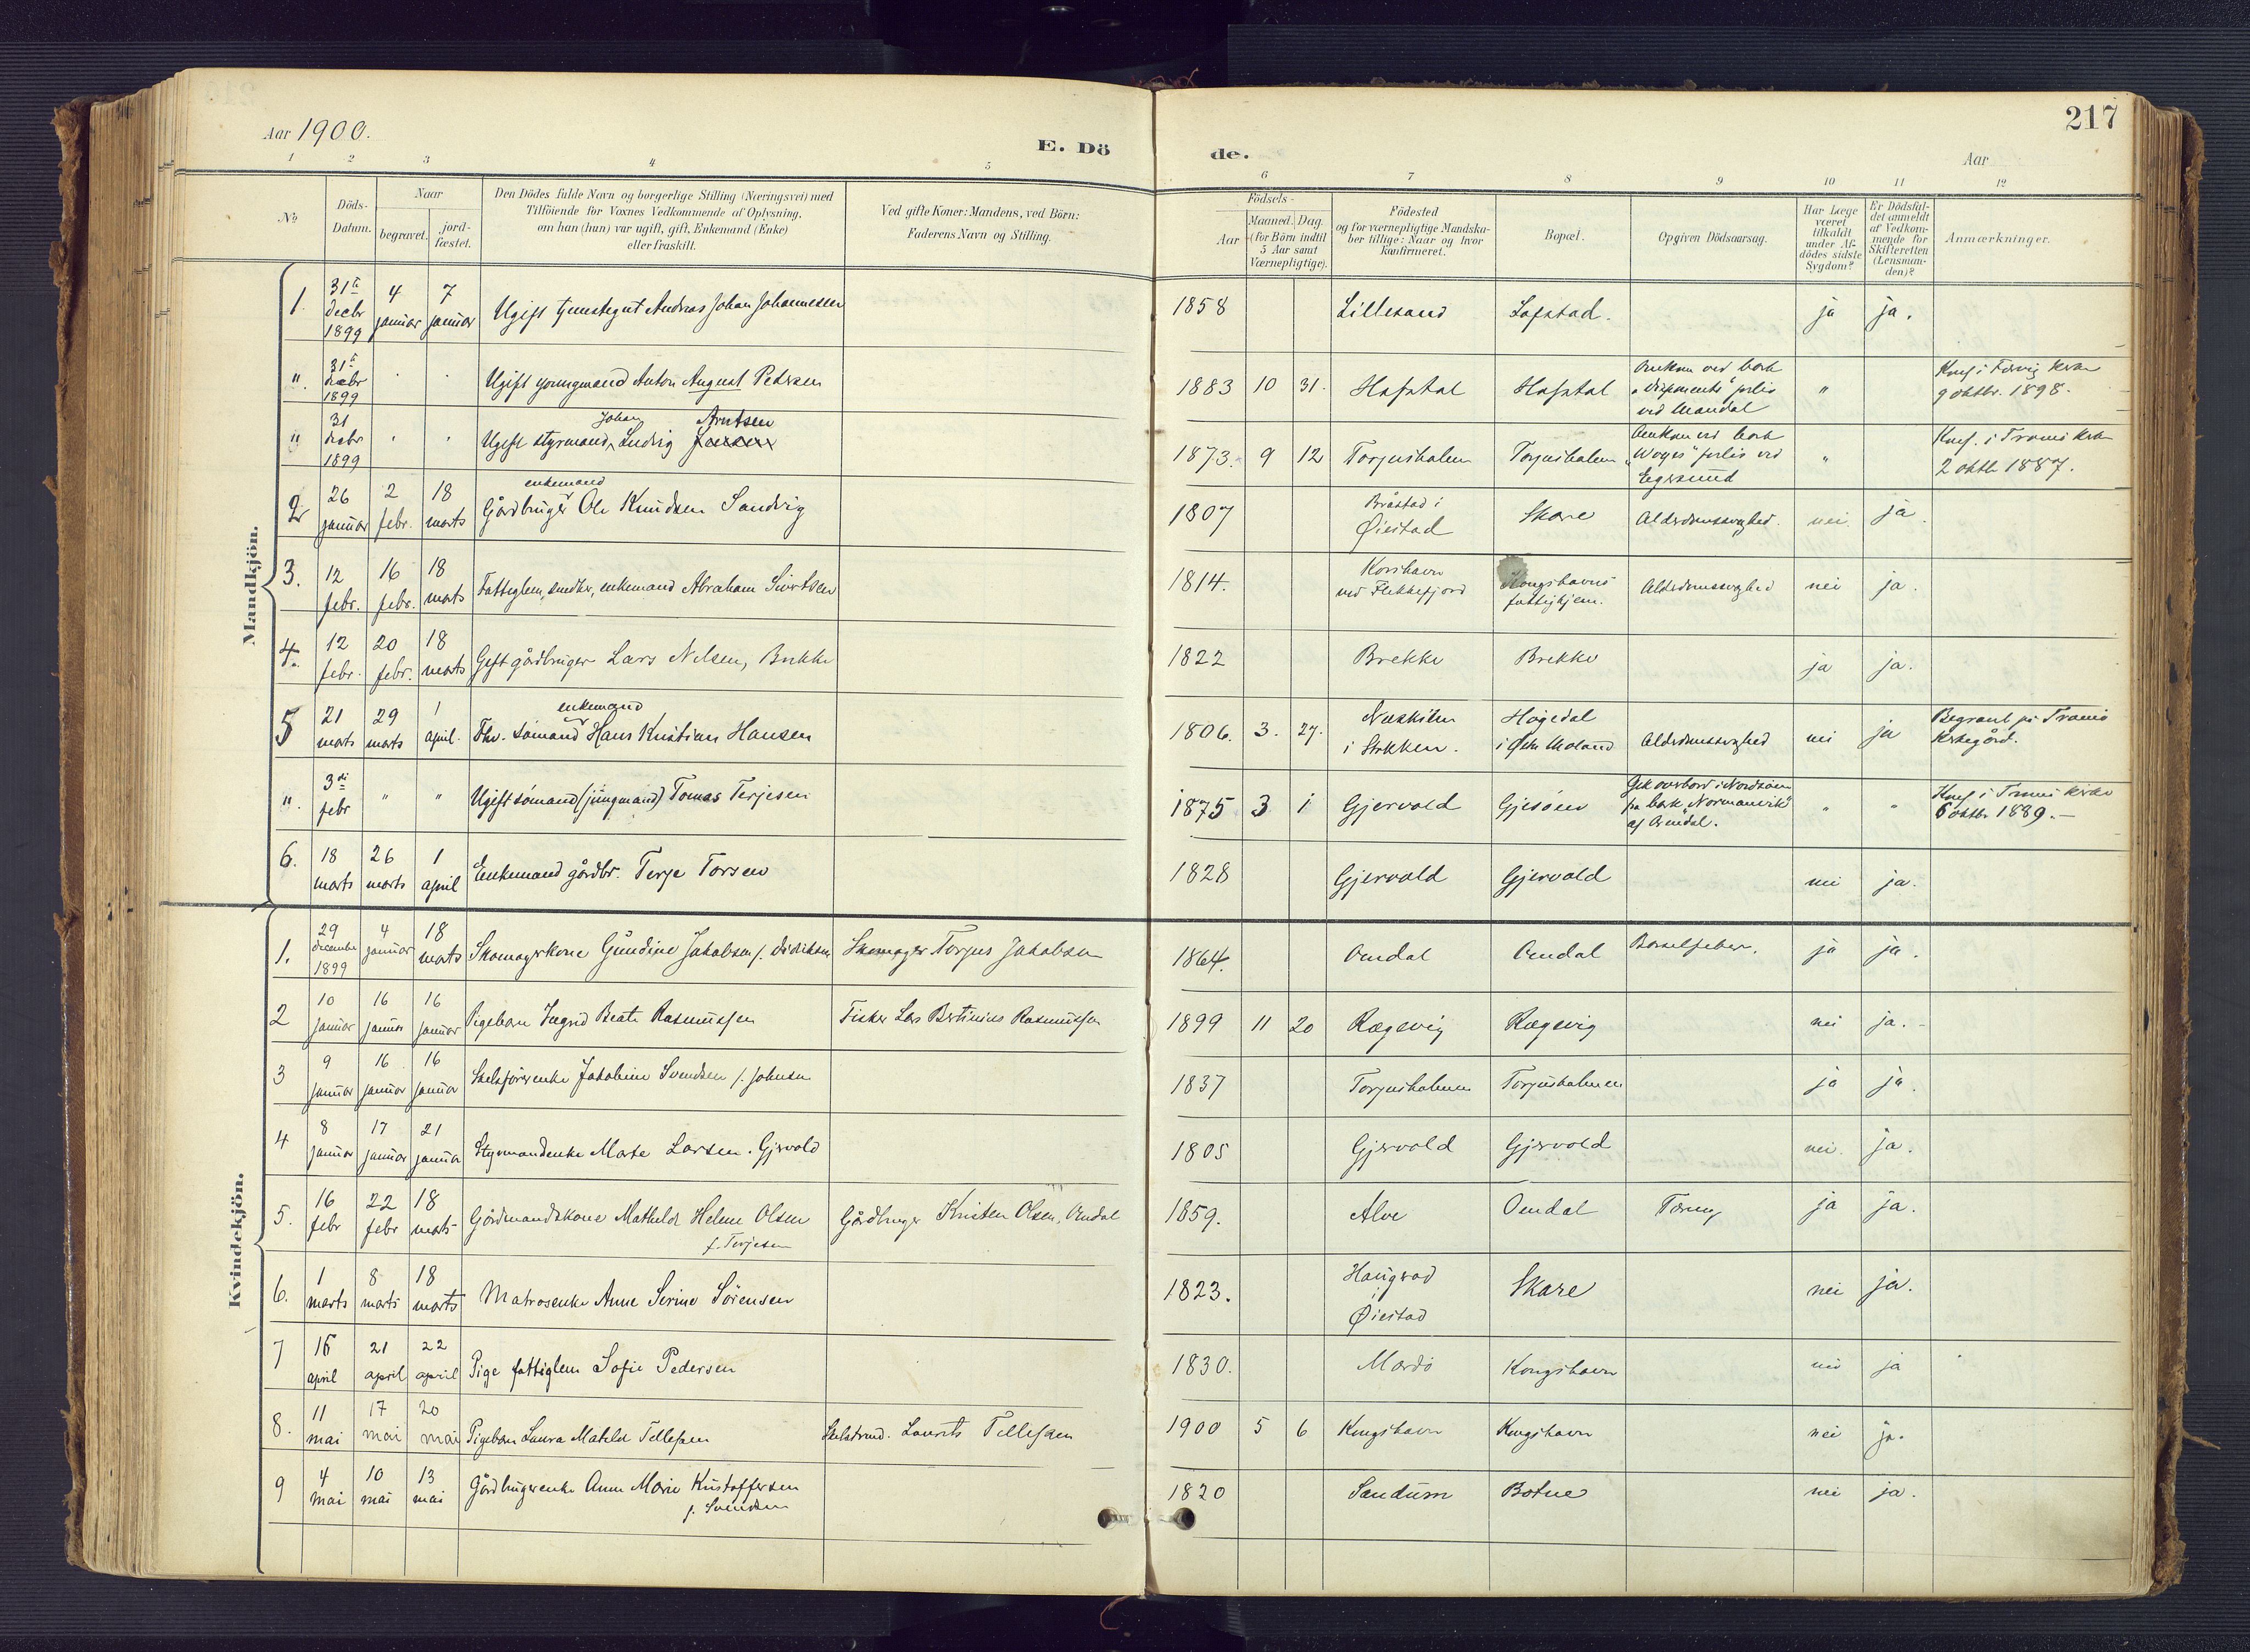 217
Aar 1900.
E. Dö
de.
Aar
1 2 3 4 5 6 7 8 9 10 11 12
№
Döds-
Datum.
Naar
begravet.
jord-
fæstet.
Den Dödes fulde Navn og borgerlige Stilling (Næringsvei) med
Tilföiende for Voxnes Vedkommende af Oplysning,
om han (hun) var ugift, gift, Enkemand (Enke)
eller fraskilt.
Ved gifte Koner: Mandens, ved Börn:
Faderens Navn og Stilling.
Födsels-
Aar
Maaned. Dag.
(for Börn indtil
5 Aar samt
Værnepligtige).
Födested
og for værnepligtige Mandska-
ber tillige: Naar og hvor
Konfirmeret.
Bopæl.
Opgiven Dödsaarsag.
Har Læge
været
tilkaldt
under Af-
dödes sidste
Sygdom?
Er Dödsfal-
det anmeldt
af Vedkom-
mende for
Skifteretten
(Lensman-
den)?
Anmærkninger.
Mandkjön.
1. 31te decbr 1899 4 januar 7 januar Ugift tjenestegut Andreas Johan Johannessen 1858 Lillesand Lofstad. ja ja.
". 31te decbr 1899 Ugift youngmand Anton August Petersen 1883 10 31. Hofstal Hofstal Omkom ved bark forlis ved Mandal " Konf. i Færvig kirke 9 oktbr. 1898.
" 31 decbr 1899 " " Ugift styrmand Johan Ludvig Jensen Arntsen 1873. 9 12 Torjusholm Torjusholm Omkom ved bark "Woges" forlis ved Egersund " Konf. i Tromö kirke 2 oktb 1887.
2 26 januar 2 febr. 18 marts Gårdbruger enkemand Ole Knudsen Sandvig 1807 Bråstad i Øiestad Skare Alderdomssvaghed. nei ja.
3. 12 febr. 16 febr. 18 marts Fattiglem, snedker, enkemand Abraham Sivertsen 1814. Korshavn ved Flekkefjord Kongshavns fattighjem. Alderdomssvaghed nei ja.
4. 12 febr. 20 febr. 18 marts Gift gårdbruger Lars Nilsen, Brekke 1822 Brekke Brekke ja ja.
5 21 marts 29 marts 1 april. Fhv. sömand enkemand Hans Kristian Hansen 1806. 3. 27. Næskilen i Stokken. Högedal i Østre Moland Alderdomssvaghed nei ja Begravet på Tromö kirkegård.
". 3di febr " " Ugift sömand (jungmand) Tomas Terjesen 1875 3 1 Gjervold Gjesöen Gik overbord i Nordsöen fra bark "Normanvik" af Arendal. " " Konf. i Tromö kirke 6 oktbr. 1889.
6. 18 marts 26 marts 1 april Enkemand gårdbr. Terje Torsen 1828 Gjervold Gjervold nei ja.
Kvindekjön.
1. 29 december 1899 4 januar 18 marts Skomagerkone Gundine Jakobsen f. Didriksen Skomager Torjus Jakobsen 1864. Omdal Omdal Barselfeber. ja ja.
2 10 januar 16 januar 16 januar Pigebarn Ingrid Beate Rasmussen Fisker Lars Bertinius Rasmussen 1899 11 20 Rægevig Rægevig nei ja.
3 9 januar 16 januar 16 januar Skibsförerenke Jakobine Svendsen f. Johnsen 1837 Torjusholmen Torjusholmen ja ja.
4 8 januar 17 januar 21 januar Styrmandenke Marte Larsen. Gjervold 1805 Gjervold Gjervold nei. ja.
5. 16 febr 22 febr 18 marts Gårdmandskone Mathilde Helene Olsen f. Terjesen Gårdbruger Kristen Olsen, Omdal 1859. Alve Omdal Tæring ja ja.
6. 1 marts 8 marts 18 marts Matrosenke Anne Serine Sörensen 1823. Haugerød Øiestad Skare nei ja.
7 16 april 21 april 22 april Pige fattiglem Sofie Pedersen 1830. Mærdö Kongshavn nei ja
8. 11 mai 17 mai 20 mai Pigebarn Laura Matilde Tellefsen Laurits Tellefsen 1900 5 6 Kongshavn Kongshavn nei ja.
9 4 mai 10 mai 13 mai Gårdbrugerenke Anne Marie Kristoffersen f. Svendsen 1820 Sandum Botne nei ja.